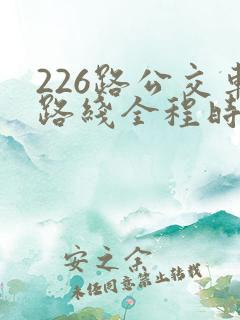 226路公交车
路线全程时
安之余
未经同意禁止转载